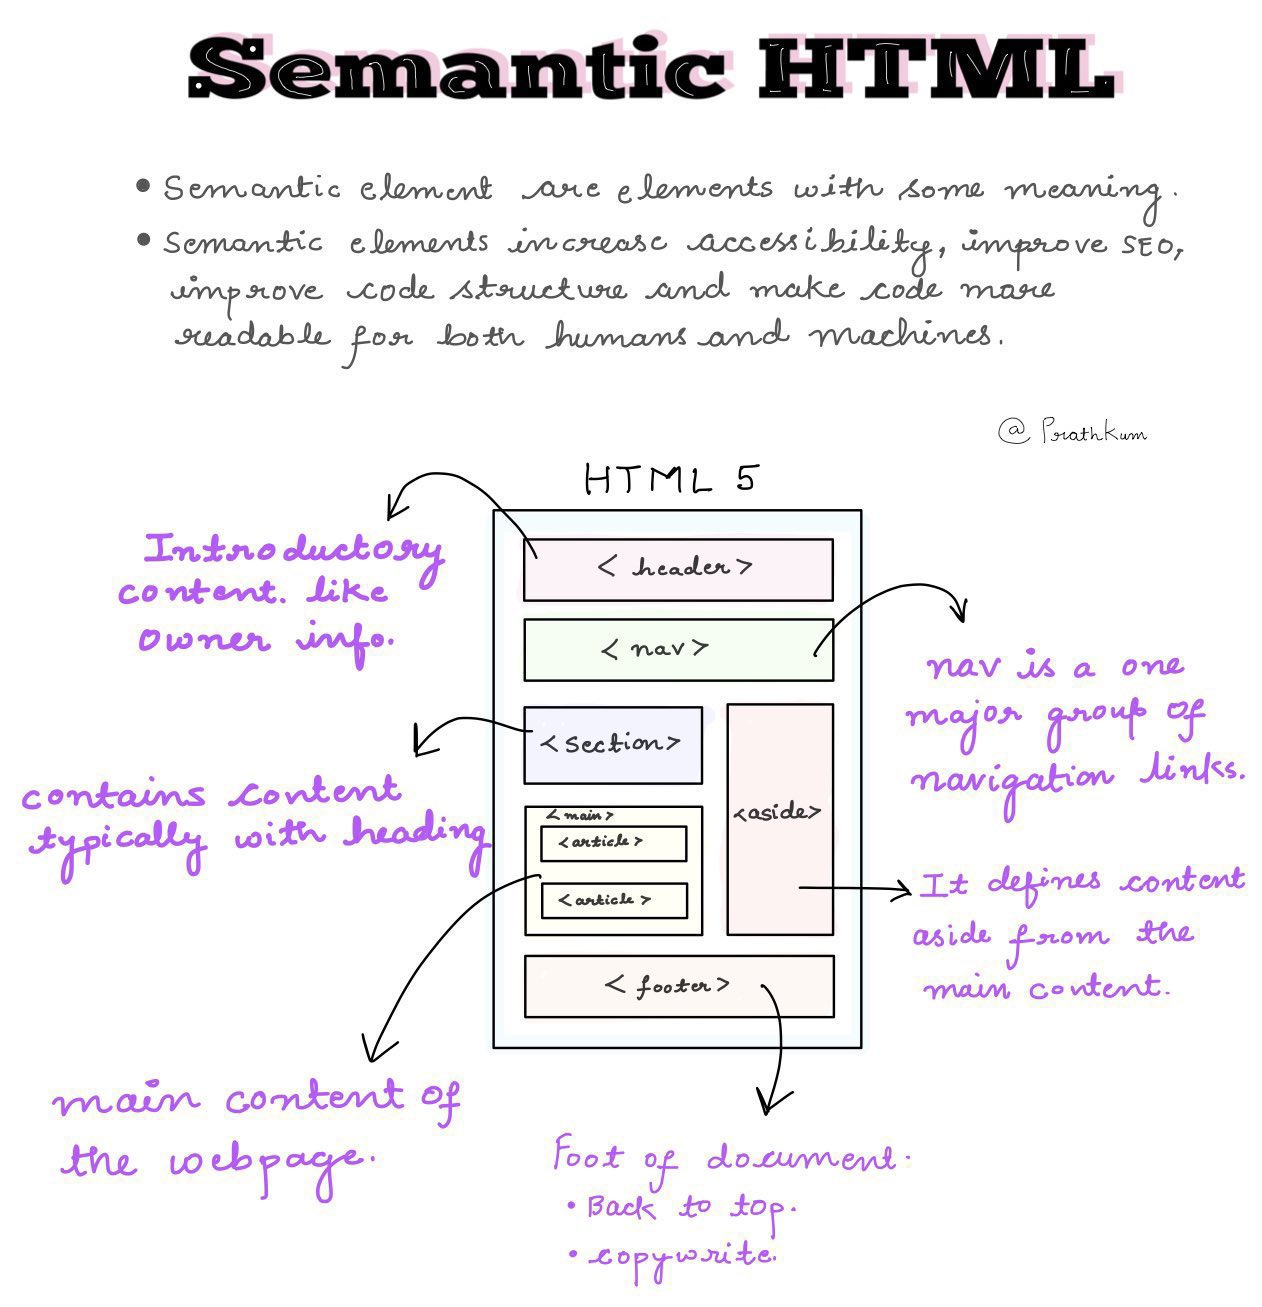 Semantic HTML
• Semantic element are elements with some meaning.
• Semantic elements increase accessibility, improve SEO,
improve code structure and make code more
readable for both humans and machines.
@ PrathKum
HTML 5
Introductory
content. like
owner info.
< header >
< nav >
nav is a one
major group of
navigation links.
< section >
contains content
typically with heading
<aside>
< main >
<article>
<article>
It defines content
aside from the
main content.
< footer >
main content of
the webpage.
Foot of document.
• Back to top.
• copywrite.